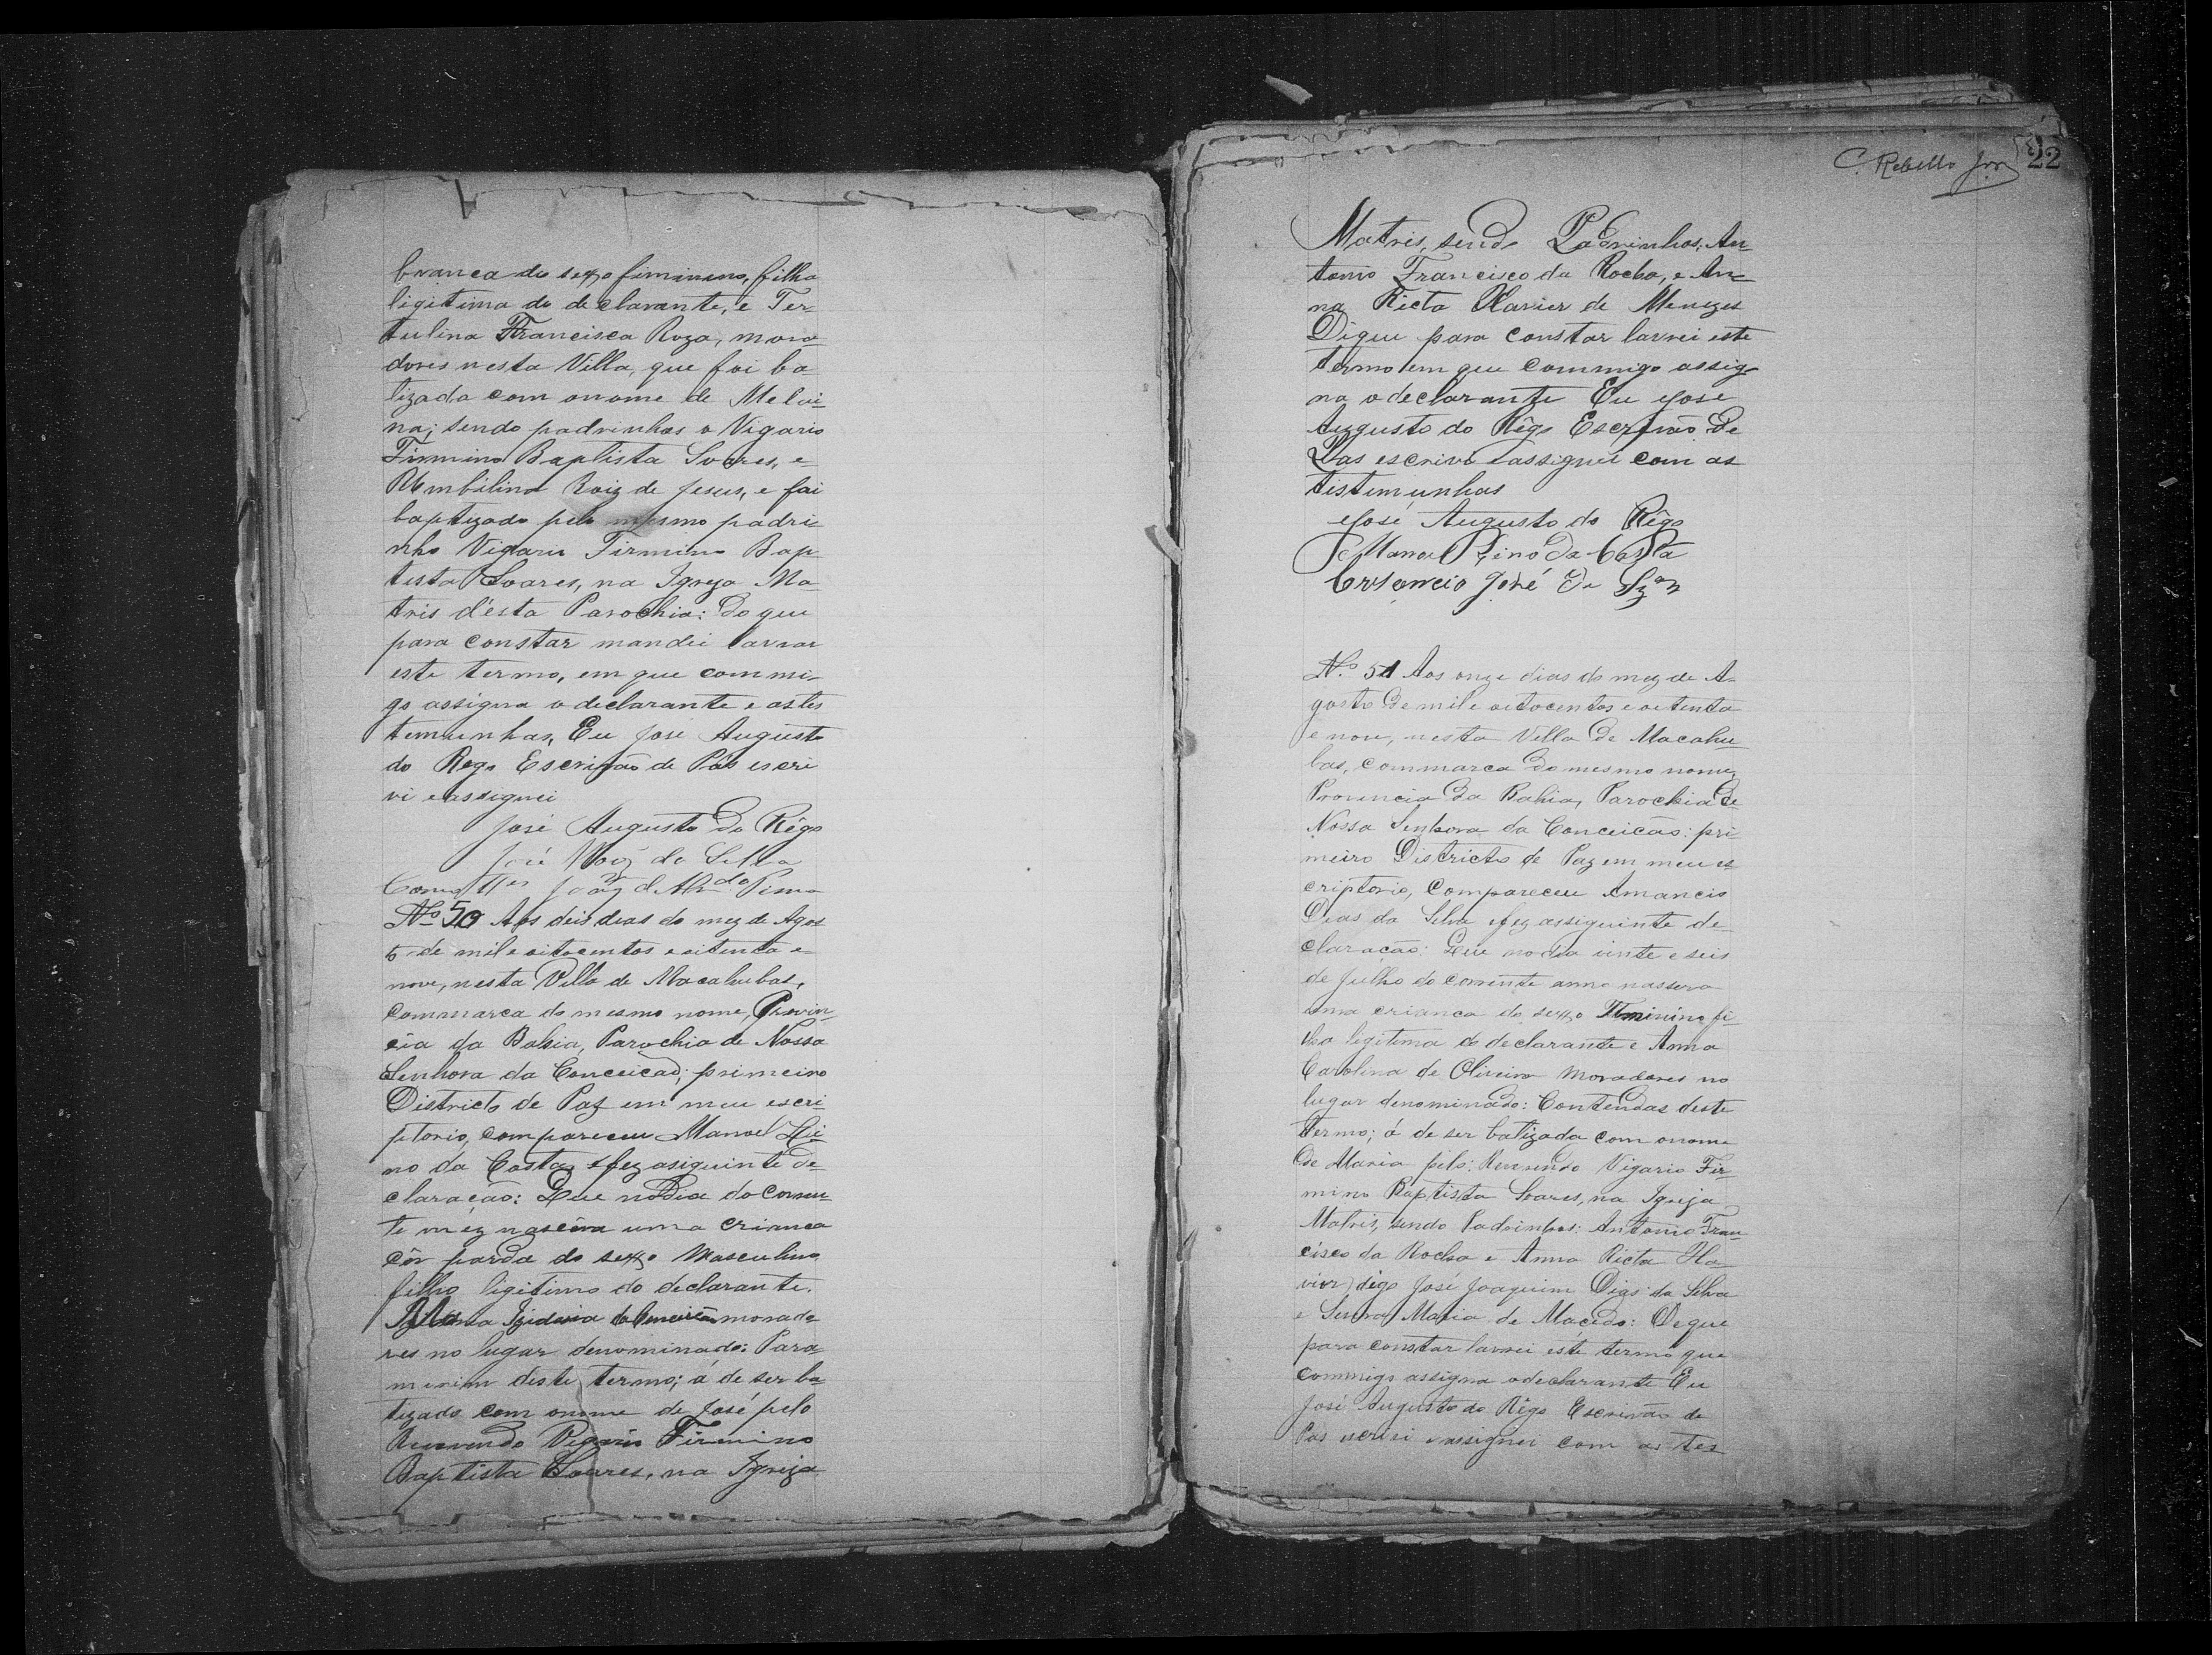 branca do sexo fiminino, filha
ligitima do declarante, e Ter-
tulina Francisca Roza, mora
dores nesta Villa, que foi ba
tizada com onome de Melvi-
na; sendo padrinhos o Vigario
Firmino Baptista Soares, e
Umbilina Roiz de Jesus, e foi
baptizada pelo mesmo padri-
nho Vigario Firmino Bap
tista Soares, na Igreja Ma-
tris désta Parochia: Do que
para constar mandei lavrar
este termo, em que commi-
go assigna o declarante e astes
temunhas, Eu José Augusto
do Rego Escrivão de Pás escri
vi eassignei
José Augusto do Rêgo
José da Silva
No 50 Aos dois dias do mez de Agos
to de mil e oitocentos e oitenta e
nove, nesta Villa de Macahubas,
commarca do mesmo nome, Provin-
cia da Bahia, Parochia de Nossa
Senhora da Conceicão; primeiro
Districto de Paz em meu escri-
ptorio, compareceu Manoel Li-
no da Costa, e fez asiguinte de-
claração: Que nodia do corren-
te mez nascêra uma crianca
côr parda do sexo Masculino
filho ligitimo do declarante.
morado
res no lugar denominado: Para
merim deste termo; á de ser ba
tizado com onome de José pelo
Reverendo Vigario Firmino
Baptista Soares, na Igreja
C. Rebello Jor 22
Matris, sendo Padrinhos: An
tonio Francisco da Rocha, e An-
na Ricta Xavier de Menezes
Dique para constar lavrei este
termo em que commigo assig-
na o declarante Eu José
Augusto do Rêgo Escrivão de
Pas escrivi eassignei com as
tistimunhas
José Augusto do Rêgo
Manoel Lino da Costa
José de
No 51 Aos onze dias do mez de A-
gosto de mil e oitocentos e oitenta
e nove, nesta Villa de Macahu
bas, Commarca do mesmo nome,
Provincia da Bahia, Parochia de
Nossa Senhora da Conceicão: pri
meiro Districto de Paz em meu es
criptorio, Compareceu Amancio
Dias da Silva efez assiguinte de-
claração: Que nodia vinte e seis
de Julho do corrente anno nassera
uma crianca do sexo Fiminino fi-
lha legitima do declarante e Anna
Carolina de Oliveira Moradores no
lugar denominado: Contendas deste
termo; á de ser batizada com onome
de Maria pelo: Reverendo Vigario Fir-
mino Baptista Soares, na Igreja
Matris, sendo Padrinhos: Antonio Fran
cisco da Rocha e Anna Ricta Xa-
vier) digo José Joaquim Dias da Silva
e Maria de Macêdo: Deque
para constar lavrei este termo que
commigo assigna odeclarante Eu
José Augusto do Rêgo Escrivão de
Pas escrivi eassignei com as tes